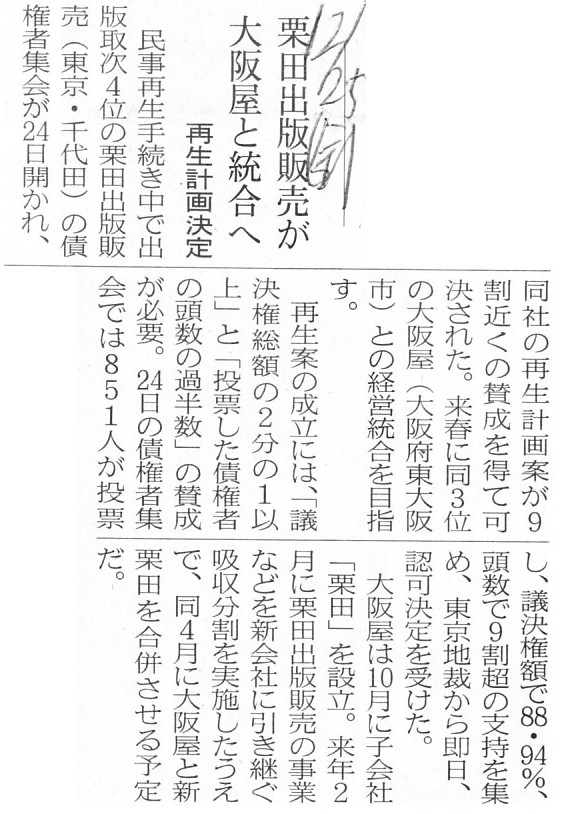 12/25 朝
栗田出版販売が
大阪屋と統合へ
再生計画決定
民事再生手続き中で出
版取次4位の栗田出版販
売（東京・千代田）の債
権者集会が24日開かれ、
同社の再生計画案が9
割近くの賛成を得て可
決された。来春に同3位
の大阪屋（大阪府東大阪
市）との経営統合を目指
す。
再生案の成立には、「議
決権総額の2分の1以
上」と「投票した債権者
の頭数の過半数」の賛成
が必要。24日の債権者集
会では851人が投票
し、議決権額で88・94％、
頭数で9割超の支持を集
め、東京地裁から即日、
認可決定を受けた。
大阪屋は10月に子会社
「栗田」を設立。来年2
月に栗田出版販売の事業
などを新会社に引き継ぐ
吸収分割を実施したうえ
で、同4月に大阪屋と新
栗田を合併させる予定
だ。